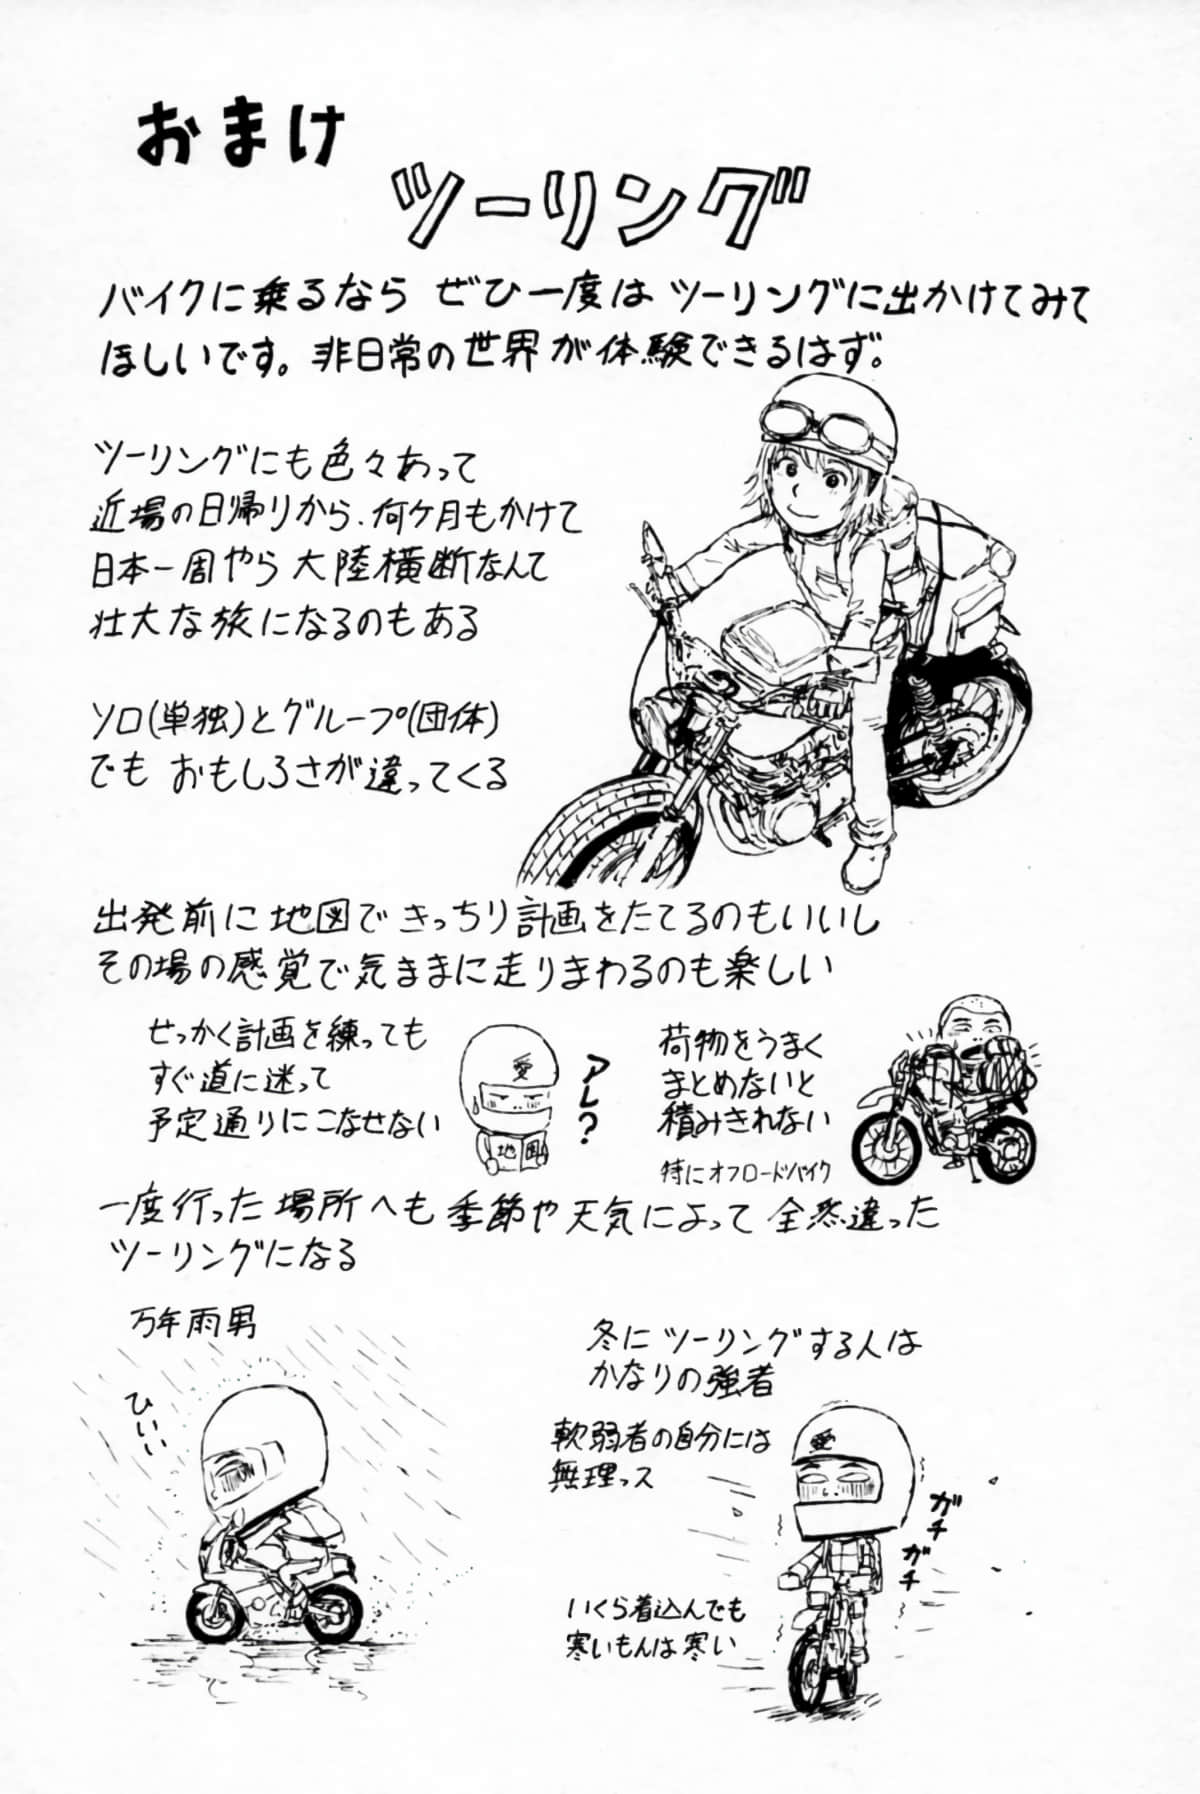 おまけ
ツーリング
バイクに乗るなら ぜひ一度は ツーリングに出かけてみて
ほしいです。非日常の世界が体験できるはず。
ツーリングにも色々あって
近場の日帰りから、何ケ月もかけて
日本一周やら 大陸横断なんて
壮大な旅になるのもある
ソロ(単独)とグループ(団体)
でも おもしろさが違ってくる
出発前に地図できっちり計画をたてるのもいいし
その場の感覚で気ままに走りまわるのも楽しい
せっかく計画を練っても
すぐ道に迷って
予定通りにこなせない
愛
アレ?
地図
荷物をうまく
まとめないと
積みきれない
特にオフロードバイク
一度行った場所へも季節や天気によって全然違った
ツーリングになる
万年雨男
ひいぃ
冬にツーリングする人は
かなりの強者
軟弱者の自分には
無理っス
愛
ガチ
ガチ
いくら着込んでも
寒いもんは寒い